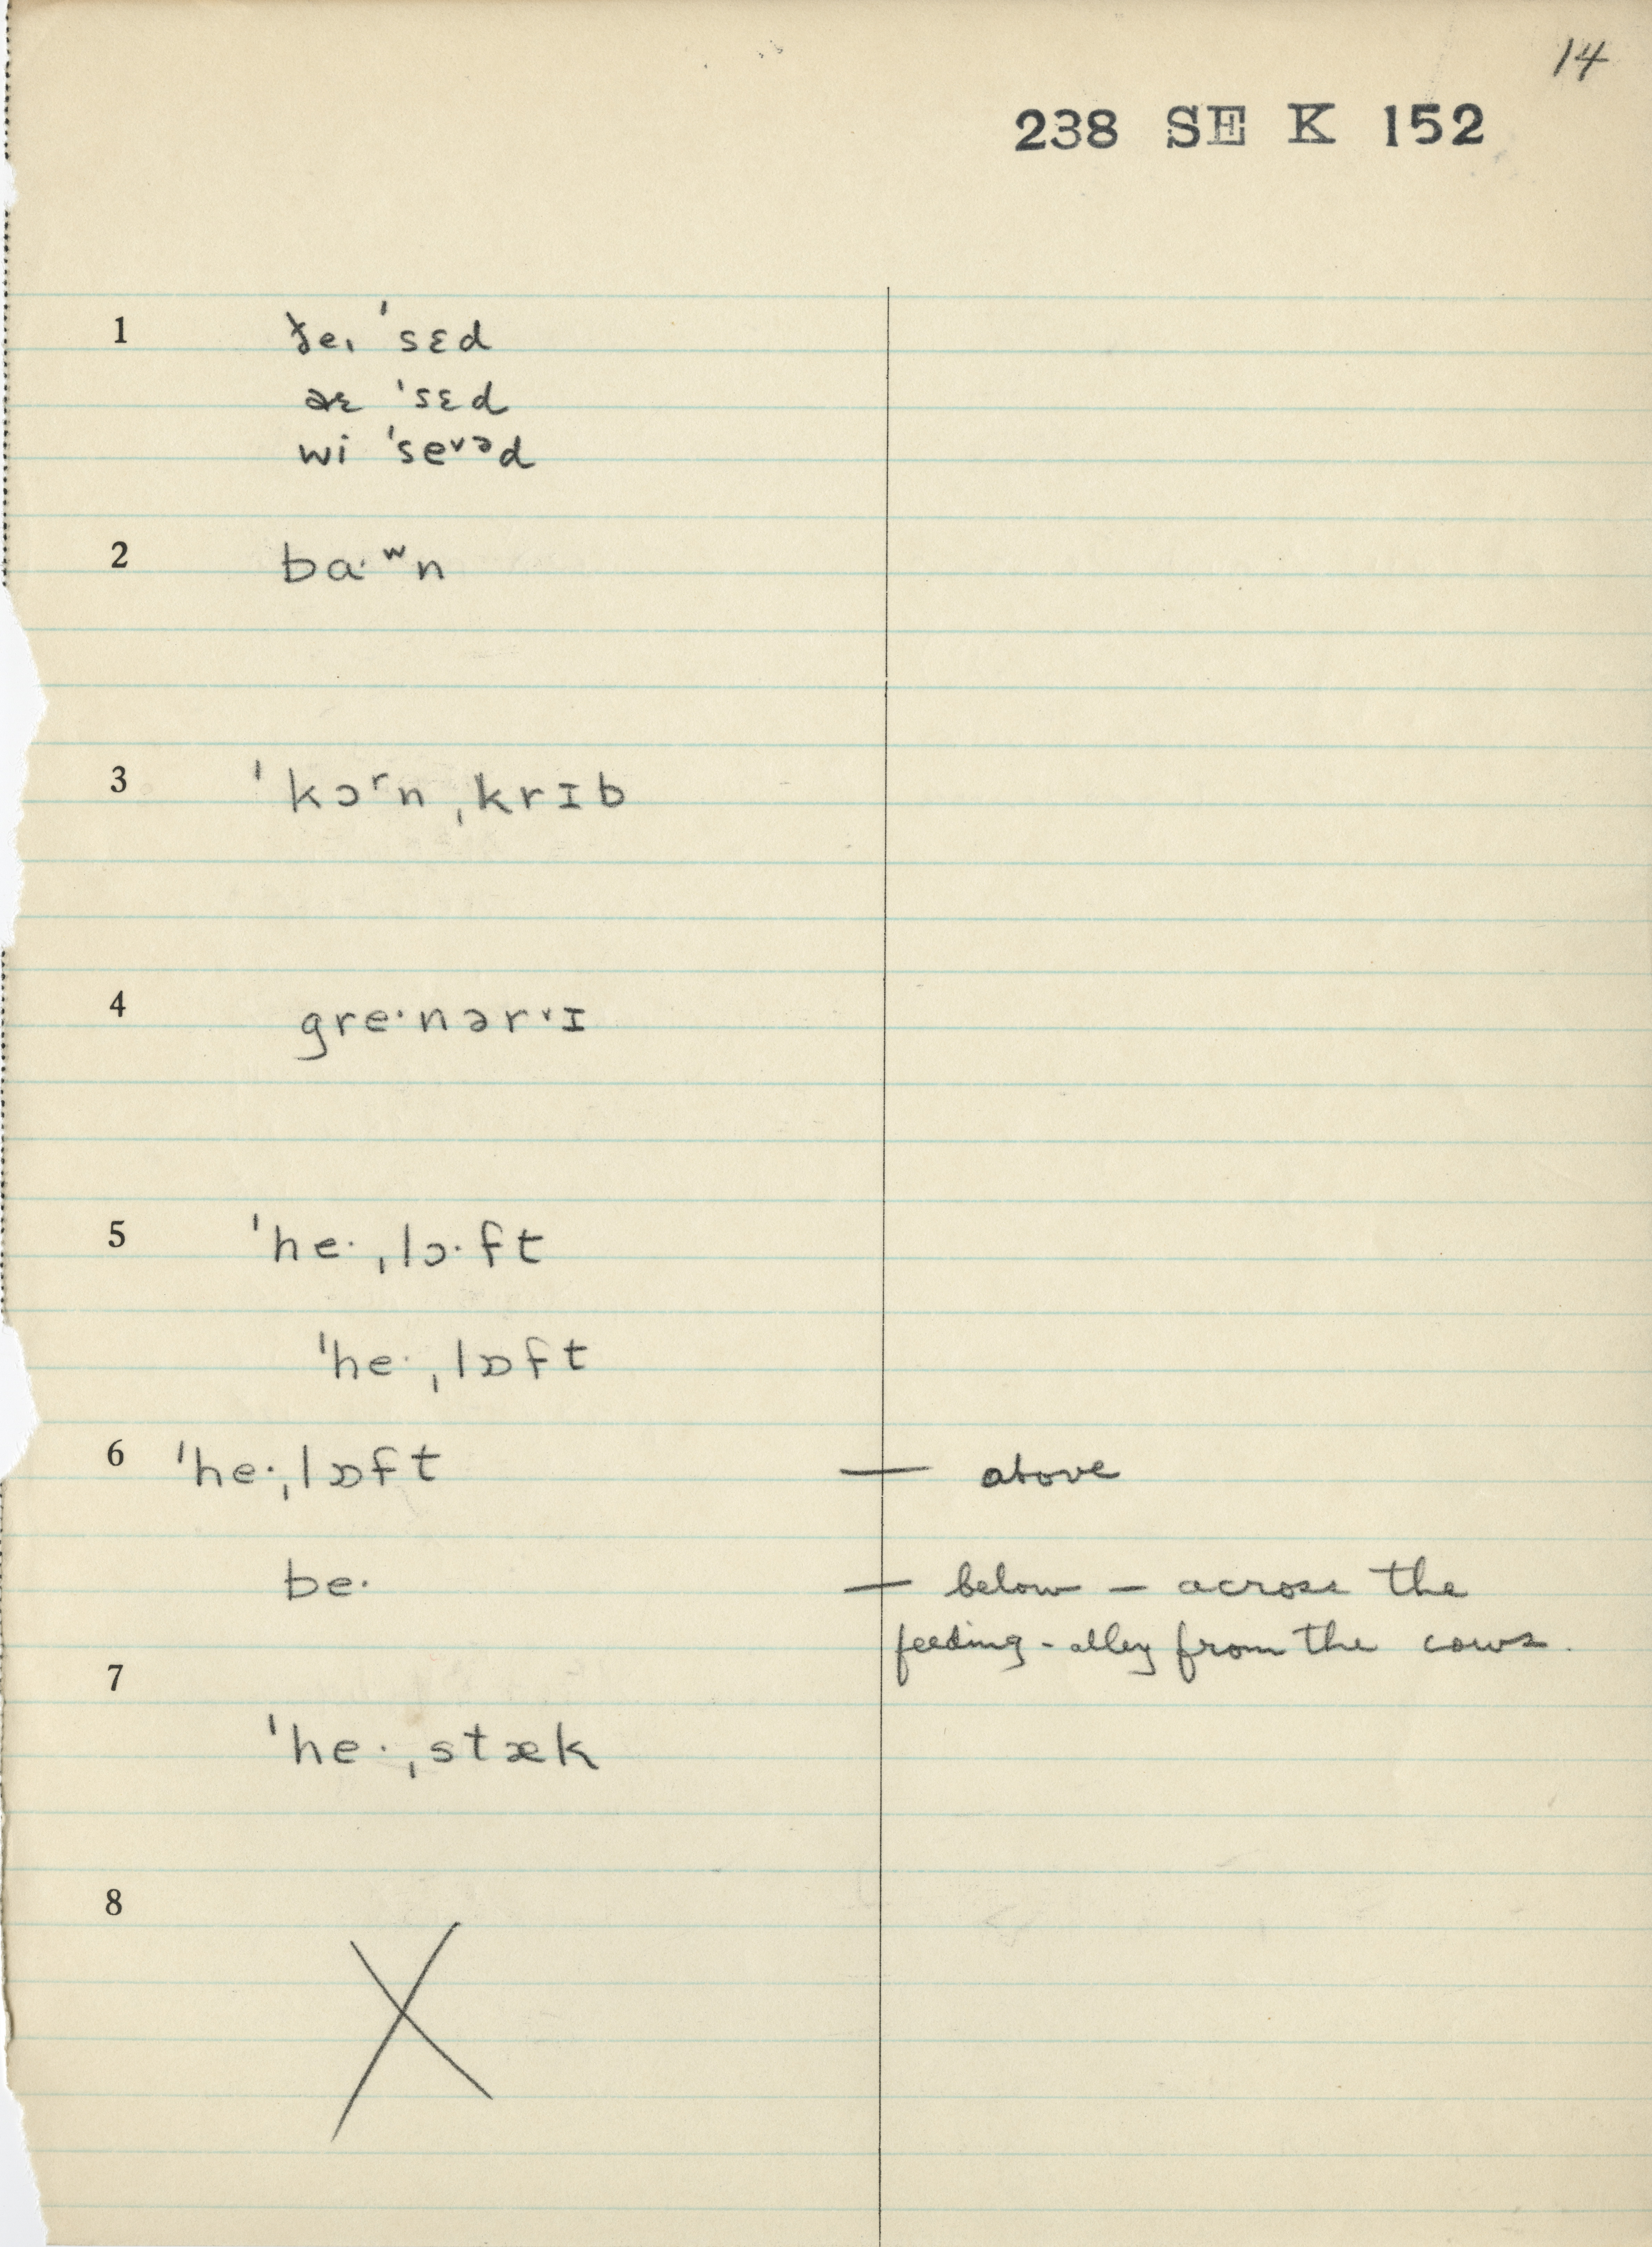 14
238 SE K 152
1 ðeɪ ˈsɛd
aɛ ˈsɛd
wi ˈseᵛᵊd
2 baˑʷn
3 ˈkɔʳn ˌkrɪb
4 greˑnərᵛɪ
5 ˈheˑ ˌlɔˑft
ˈheˑ ˌlɒft
6 ˈheˑˌlɒft — above
beˑ — below — across the
feeding-alley from the cows.
7
ˈheˑˌstæk
8
X